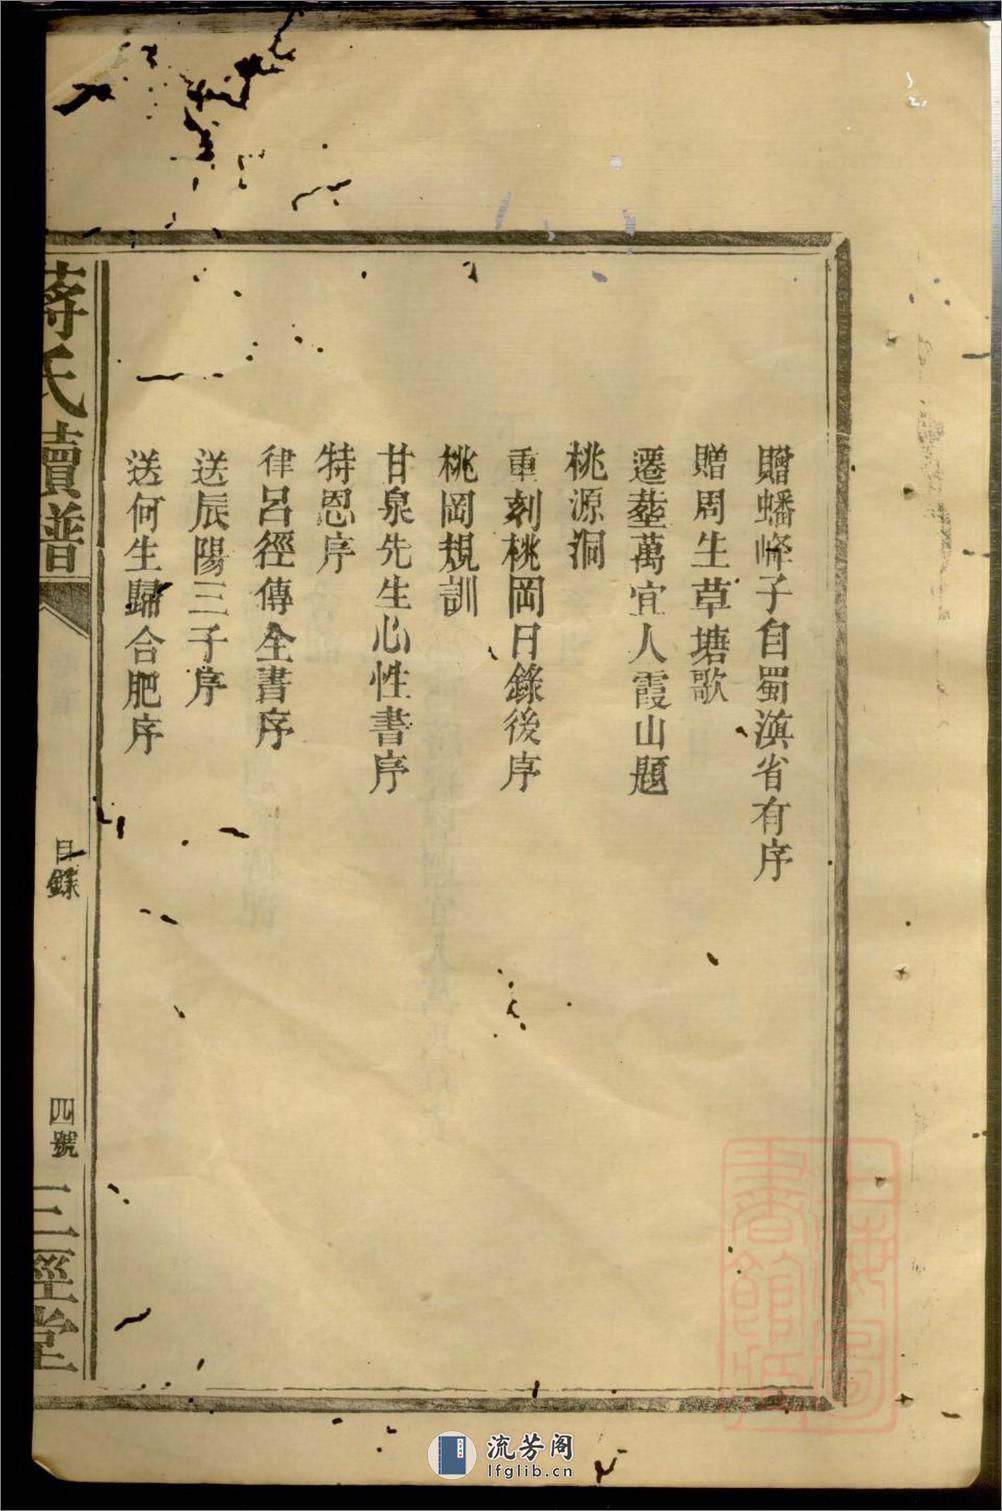 贈蟠峰子自蜀滇省有序
贈周生草塘歌
遷塟萬宜人霞山題
桃源洞
重刻桃岡日錄後序
桃岡規訓
甘泉先生心性書序
特恩序
律呂徑傳全書序
送辰陽三子序
送何生歸合肥序
蔣氏續譜
目錄
四號
三徑堂
上海圖書館藏
流芳阁
lfglib.cn